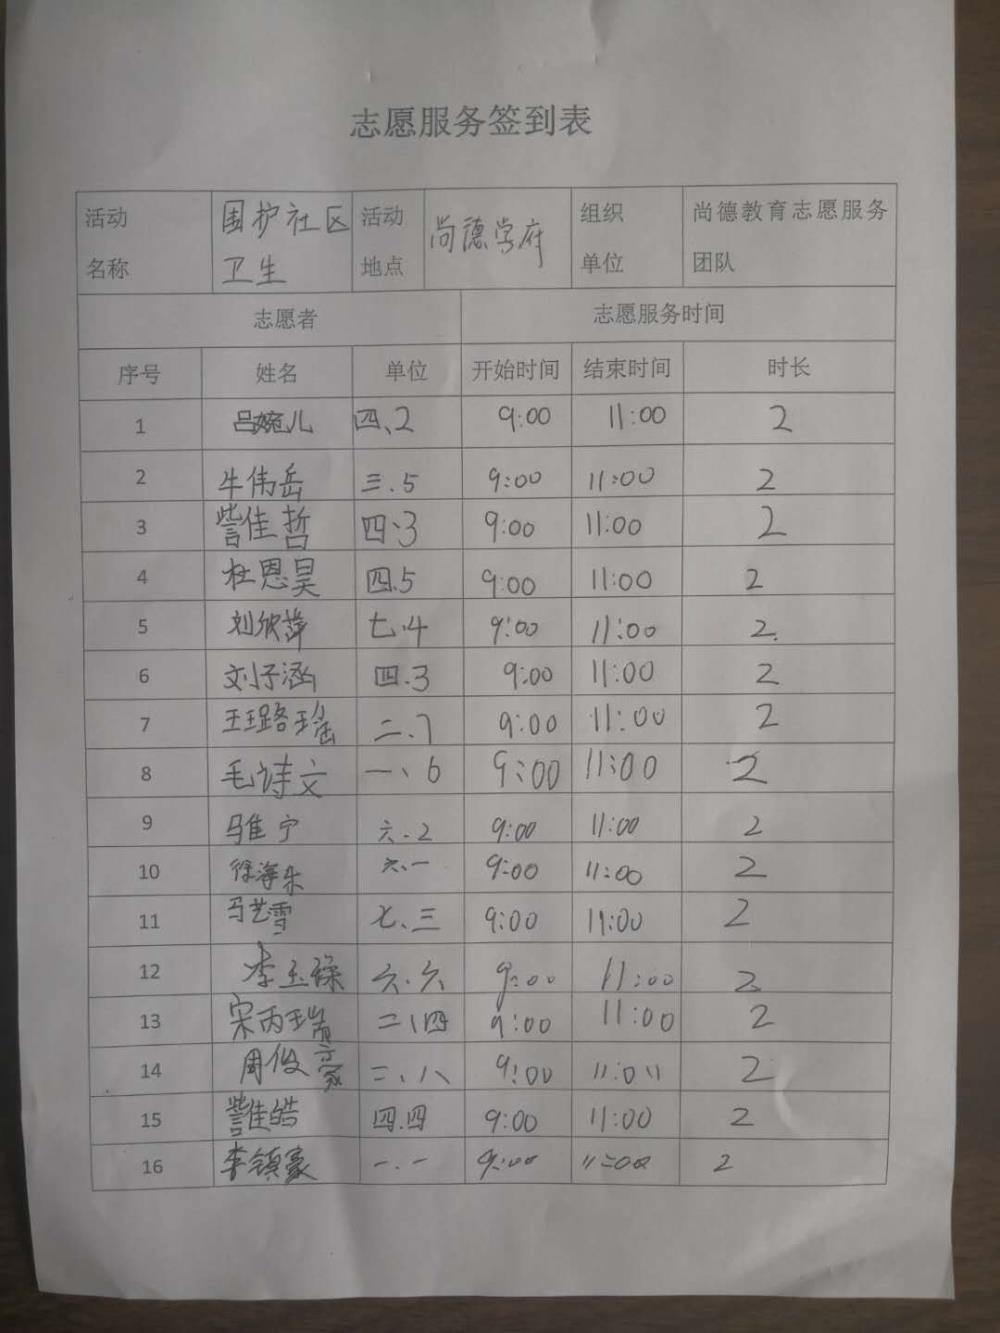 志愿服务签到表
活动名称 围护社区卫生 活动地点 尚德学府 组织单位 尚德教育志愿服务团队
志愿者 志愿服务时间
序号 姓名 单位 开始时间 结束时间 时长
1 吕婉儿 四、2 9:00 11:00 2
2 牛伟岳 三.5 9:00 11:00 2
3 訾佳哲 四.3 9:00 11:00 2
4 杜恩昊 四.5 9:00 11:00 2
5 刘欣萍 七.4 9:00 11:00 2.
6 刘子涵 四.3 9:00 11:00 2
7 王璐瑶 二.7 9:00 11:00 2
8 毛诗文 一、6 9:00 11:00 2
9 马佳宁 六.2 9:00 11:00 2
10 徐海乐 六、一 9:00 11:00 2
11 马艺雪 七、三 9:00 11:00 2
12 李玉禄 六.六 9:00 11:00 2
13 宋丙瑞 二、四 9:00 11:00 2
14 周俊豪 二、八 9:00 11:0 2
15 訾佳皓 四.四 9:00 11:00 2
16 李镇豪 一.一 9:00 11:00 2